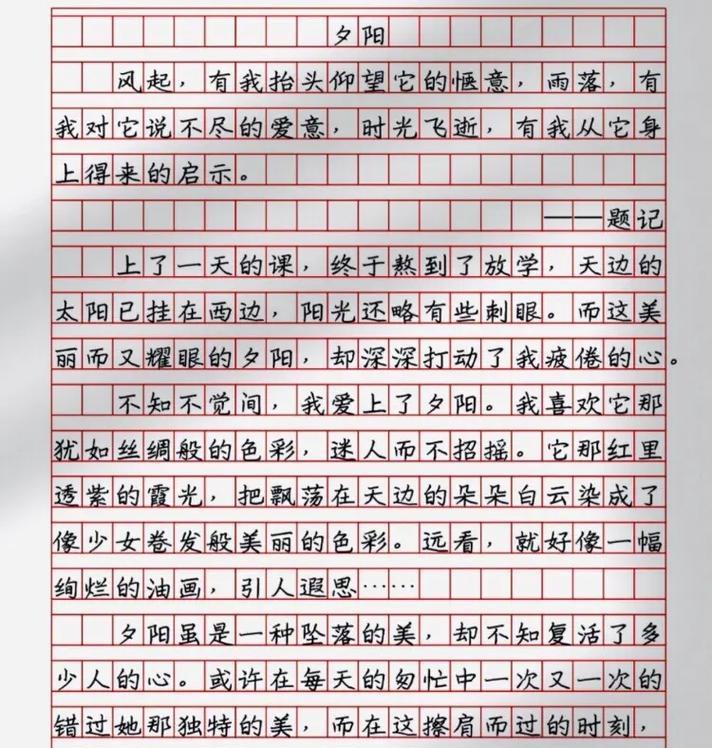 夕阳
风起，有我抬头仰望它的惬意，雨落，有
我对它说不尽的爱意，时光飞逝，有我从它身
上得来的启示。
——题记
上了一天的课，终于熬到了放学，天边的
太阳已挂在西边，阳光还略有些刺眼。而这美
丽而又耀眼的夕阳，却深深打动了我疲倦的心。
不知不觉间，我爱上了夕阳。我喜欢它那
犹如丝绸般的色彩，迷人而不招摇。它那红里
透紫的霞光，把飘荡在天边的朵朵白云染成了
像少女卷发般美丽的色彩。远看，就好像一幅
绚烂的油画，引人遐思……
夕阳虽是一种坠落的美，却不知复活了多
少人的心。或许在每天的匆忙中一次又一次的
错过她那独特的美，而在这擦肩而过的时刻，